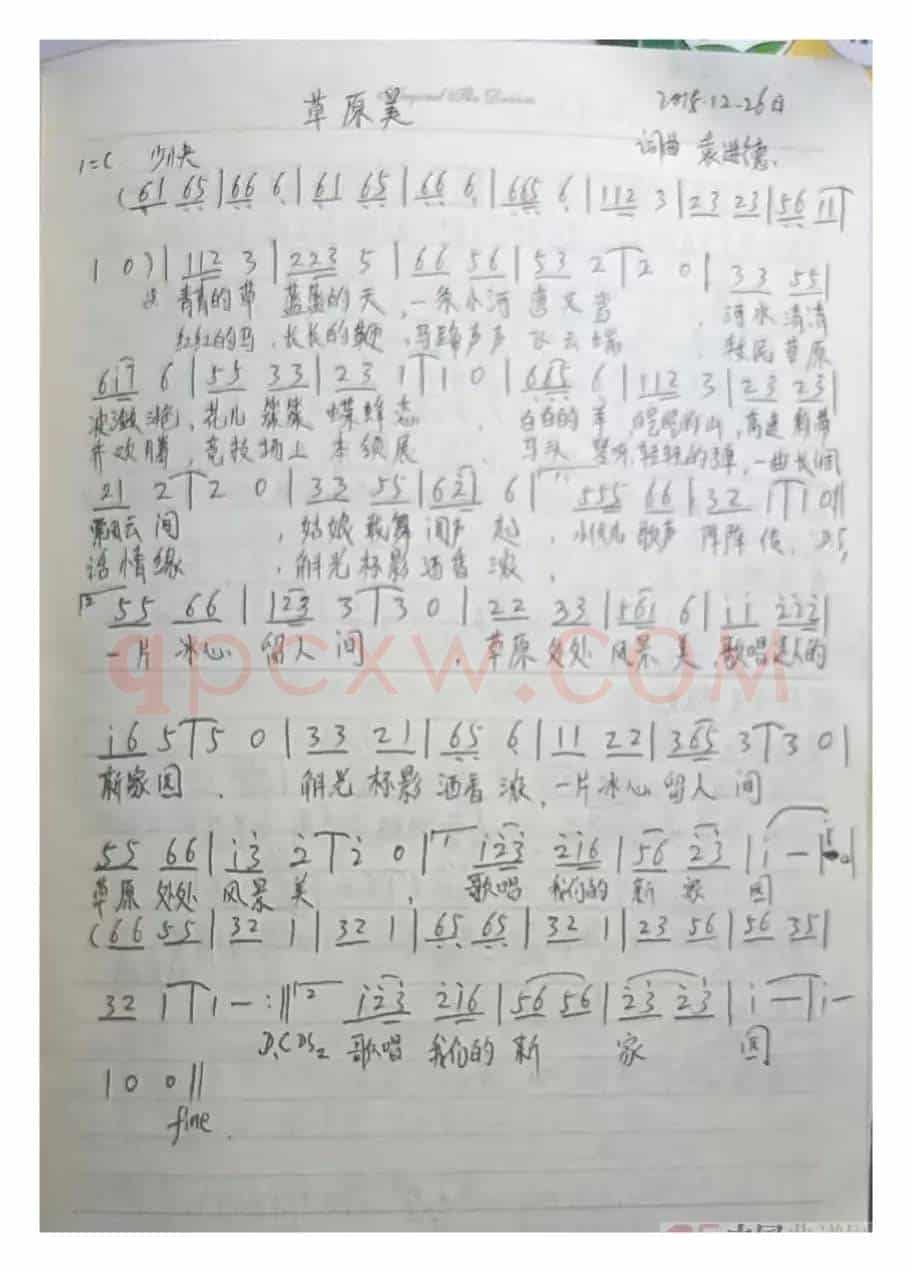 草原美
2015.12.26日
1=C 少快
词曲 袁进德
(61 65|66 6|61 65|66 6|665 6|112 3|23 23|56 11
1 0)|112 3|223 5|66 56|53 2 2 0|33 55|
青青的草 蓝蓝的天,一条小河 弯又 河水清清
红红的马,长长的鞭,马蹄声声 飞云端 牧民草原
6i7 6|55 33|23 1 1 0|665 6|112 3|23 23|
花儿 蝶蜂 白白的羊 的山,高速
齐欢腾,竞技场上 本领展 马头 琴 轻轻的弹,一曲长调
21 2 2 0|33 55|621 6| 1 555 66|32 1 1 0||
云间 ,姑娘载舞 声起, 歌声 阵阵传, D.S,
话情缘 ,斛光杯影洒香浓,
12 55 66|123 3 3 0|22 33|561 6|ii iii|
一片 冰心 留人间 ,草原处处 风景美,歌唱 的
i6 5 5 0|33 21|65 6|11 22|365 3 3 0|
新家园 , 斛光 杯影 洒香浓,一片冰心 留人 间
55 66|i3 2 2 0| 1 i23 2i6|56 23|i —
草原 处处 风景美 , 歌唱 我们的 新 家 园
(66 55|32 1|32 1|65 65|32 1|23 56|56 35|
32 1 1 — :|| 12 i23 2i6|56 56|23 23|i — i —
D.C DS2 歌唱 我们的 新 家 园
1 0 0||
fine.
qpcxw.com